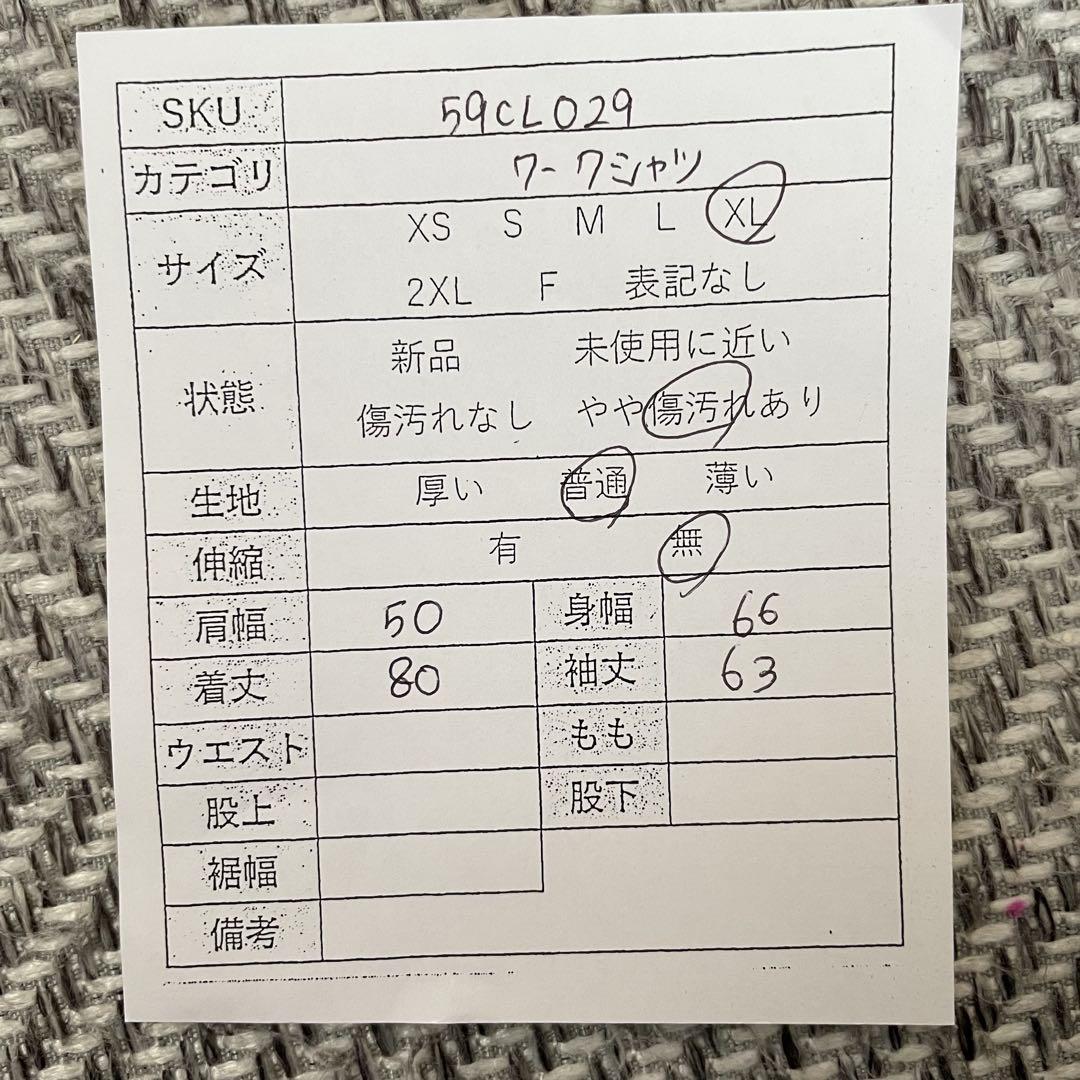 SKU 59CL029
カテゴリ ワークシャツ
サイズ XS S M L XL
2XL F 表記なし
状態 新品 未使用に近い
傷汚れなし やや傷汚れあり
生地 厚い 普通 薄い
伸縮 有 無
肩幅 50 身幅 66
着丈 80 袖丈 63
ウエスト もも
股上 股下
裾幅
備考